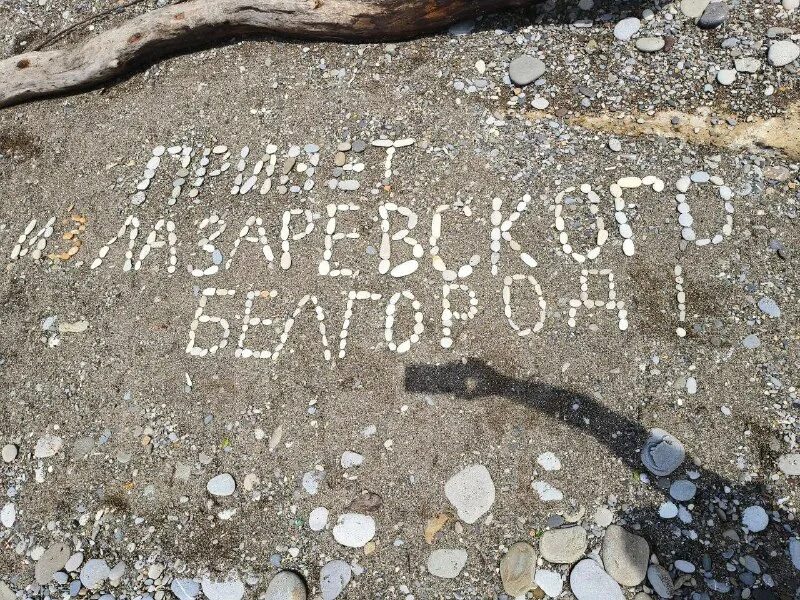 ПРИВЕТ
ИЗ ЛАЗАРЕВСКОГО
БЕЛГОРОД!